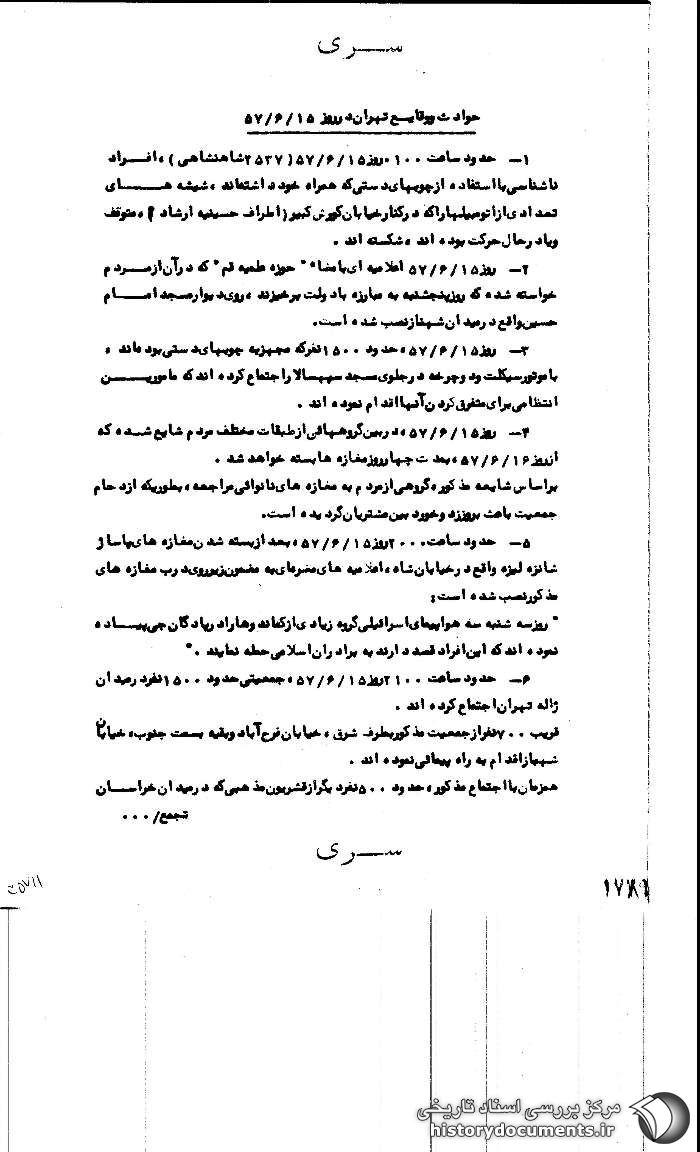 سـری
حوادث ووقایـع تهران در روز ۵۷/۶/۱۵
۱ـ حدود ساعت ۰۱۰۰ روز ۵۷/۶/۱۵ (۲۵۳۷ شاهنشاهی)، افـراد
ناشناسی با استفاده از چوبهای دستی که همراه خود داشته‌اند، شیشه هـای
تعدادی از اتومبیلها راکه درکنارخیابان کورش کبیر (اطراف حسینیه ارشاد)، متوقف
ویاد رحال حرکت بوده اند، شکسته اند.
۲ـ روز ۵۷/۶/۱۵ اعلامیه ای بامضاء " حوزه علمیه قم" که در آن از مـردم
خواسته شده که روزپنجشنبه به مبارزه بادولت برخیزند، روی دیوارمسجد امـام
حسین واقع درمیدان شهناز نصب شده است.
۳ـ روز ۵۷/۶/۱۵، حدود ۱۵۰۰ نفرکه مجهزبه چوبهای دستی بوده‌اند،
با موتورسیکلت ودوچرخه درجلوی مسجد سپهسالار اجتماع کرده اندکه ماموریـن
انتظامی برای متفرق کردن آنها اقدام نموده اند.
۴ـ روز ۵۷/۶/۱۵، دربین گروههائی ازطبقات مختلف مردم شایع شـده که
از روز ۵۷/۶/۱۶، بمدت چهار روز مغازه ها بسته خواهد شد.
براساس شایعه مذکور، گروهی ازمردم به مغازه های نانوائی مراجعه، بطوریکه ازدحام
جمعیت باعث بروز زد وخورد بین مشتریان گردیده است.
۵ـ حدود ساعت ۲۰۰۰ روز ۵۷/۶/۱۵، بعد ازبسته شدن مغازه های پاساژ
شانزه لیزه واقع درخیابان شاه، اعلامیه های مضره‌ای به مضمون زیر روی درب مغازه های
مذکورنصب شده است:
" روزسه شنبه سه هواپیمای اسرائیلی گروه زیادی ازکماندوها را در پادگان جی پیـاده
نموده اند که این افراد قصد دارند به برادران اسلامی حمله نمایند."
۶ـ حدود ساعت ۲۱۰۰ روز ۵۷/۶/۱۵، جمعیتی حدود ۱۵۰۰ نفر درمیدان
ژاله تهران اجتماع کرده اند.
قریب ۷۰۰ نفرازجمعیت مذکوربطرف شرق، خیابان فرح آباد وبقیه بسمت جنوب، خیابان
شهباز اقدام به راه پیمائی نموده اند.
همزمان با اجتماع مذکور، حدود ۵۰۰ نفردیگر ازقشریون مذهبی که درمیدان خراسـان
تجمع/۰۰۰
سـری
مرکز بررسی اسناد تاریخی
historydocuments.ir